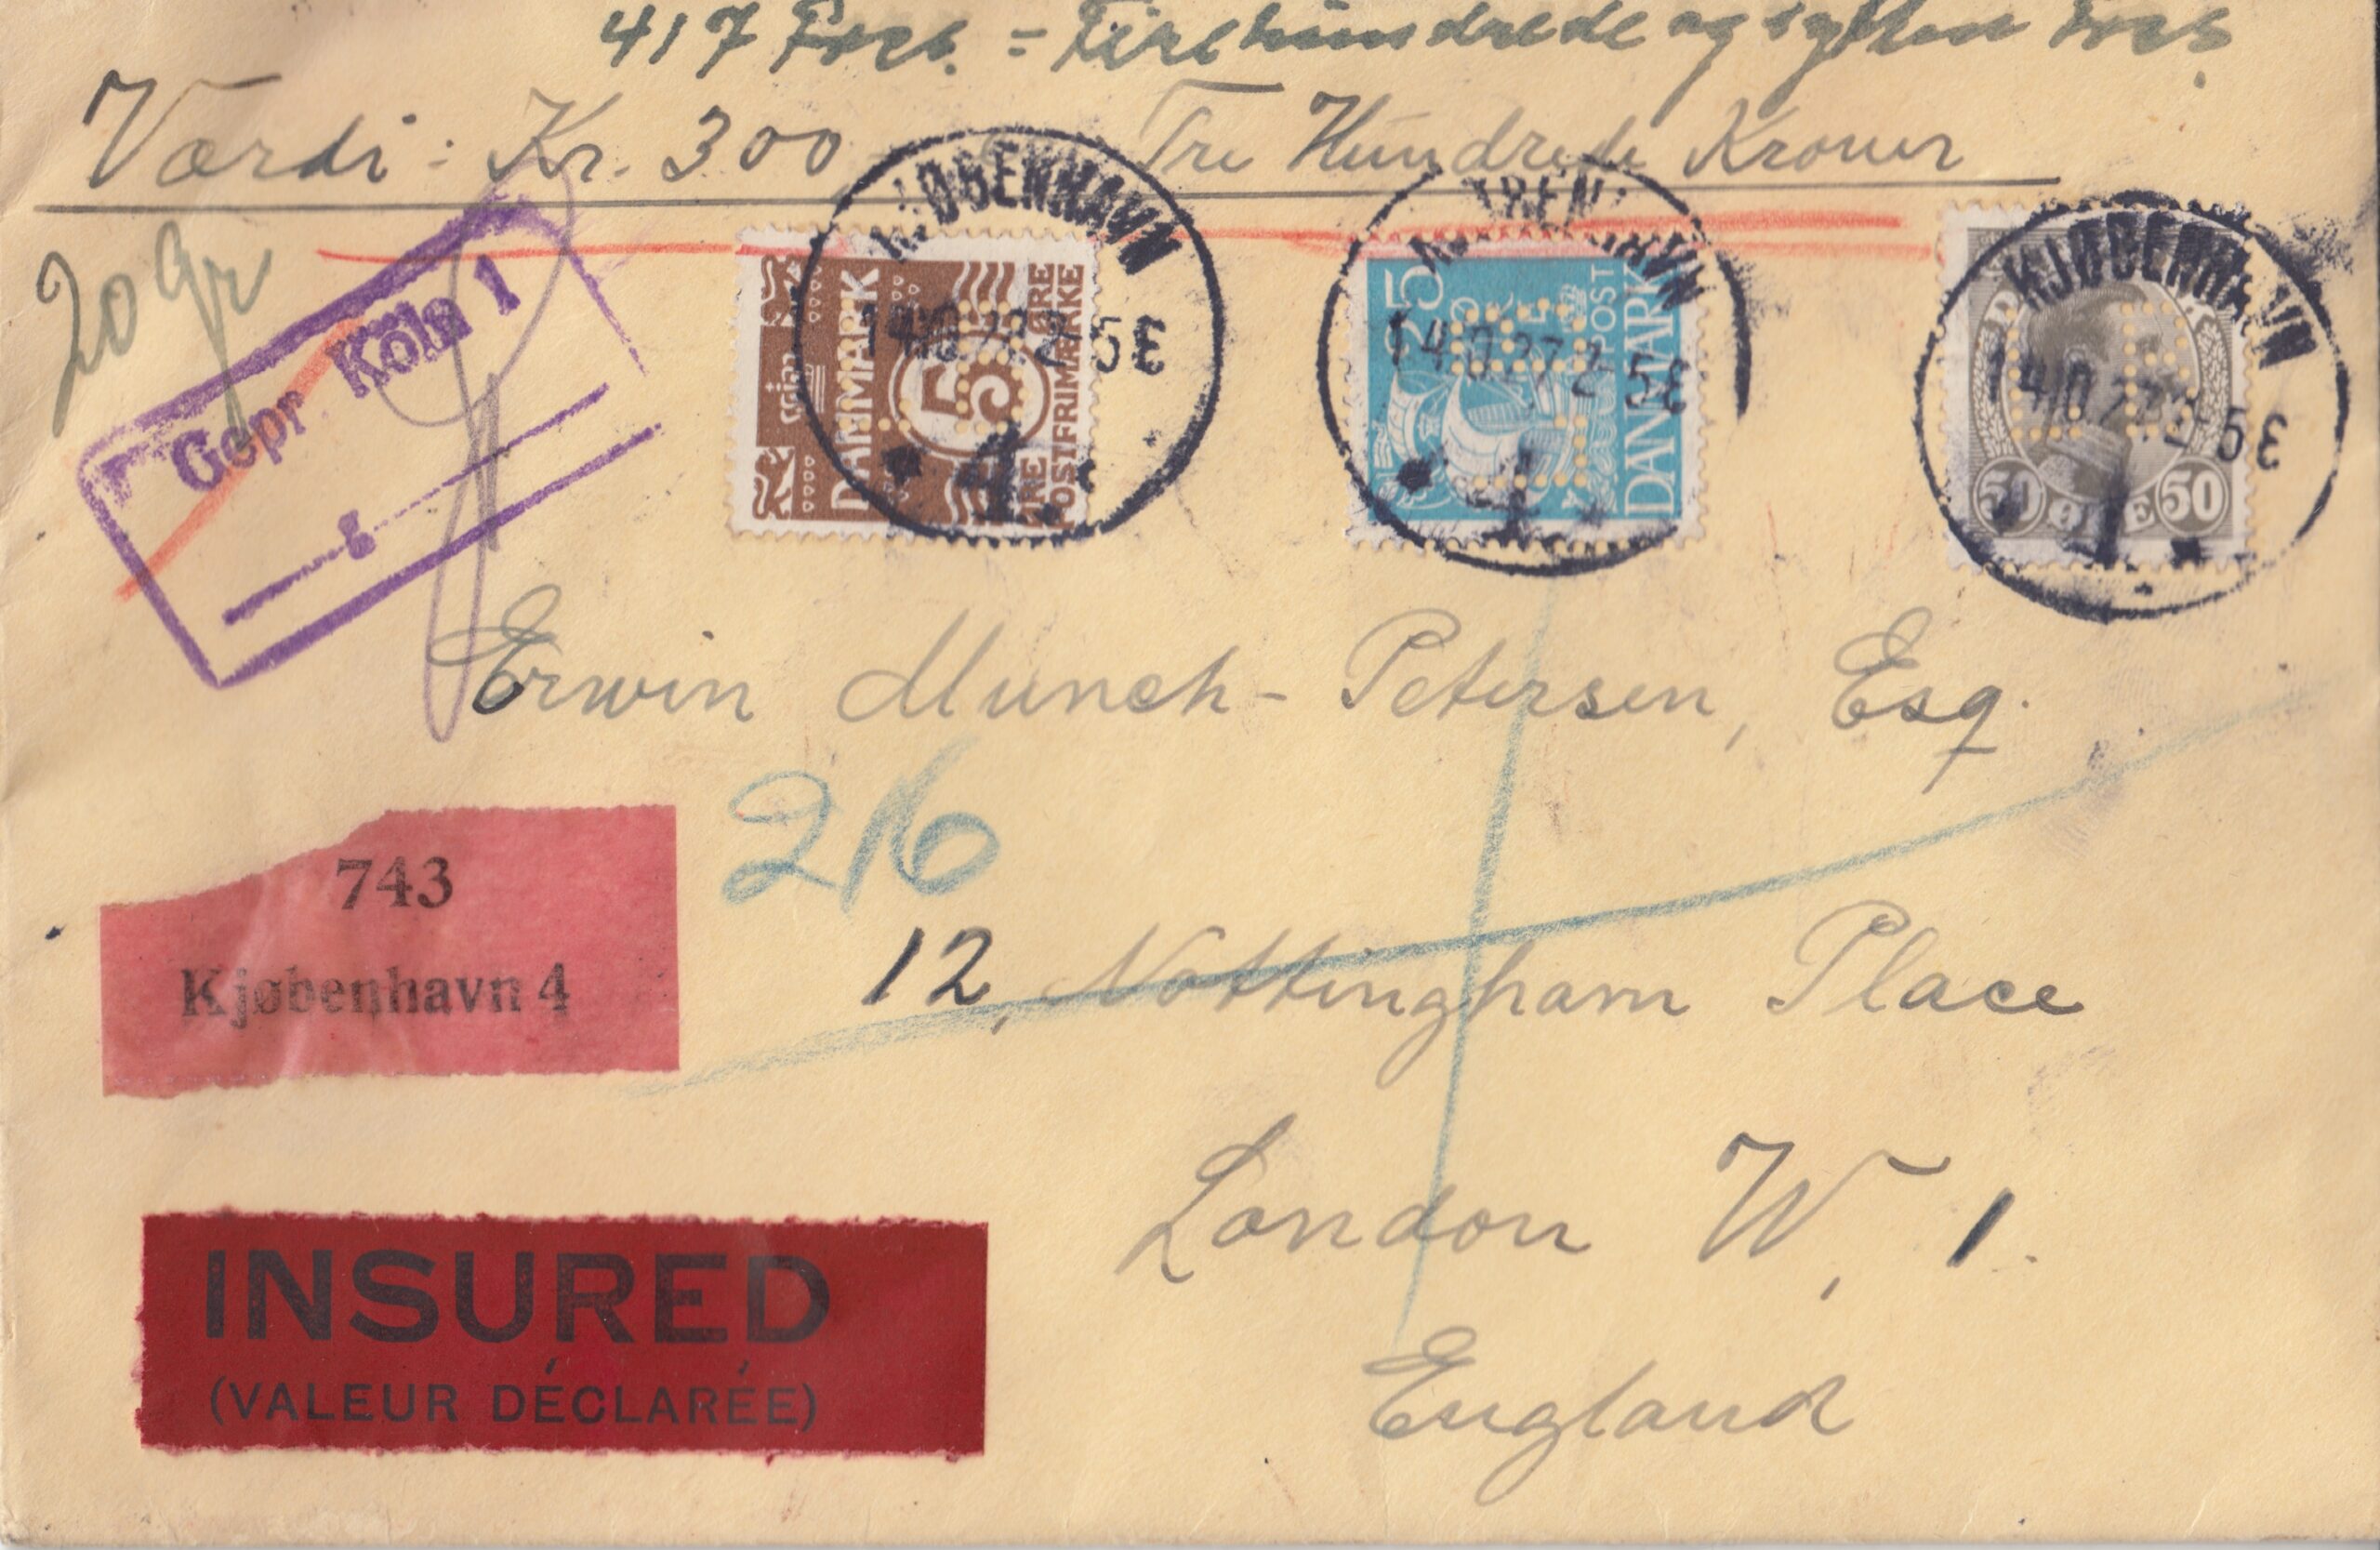 417 Frcs. = Firehundrede og sytten Frcs.
Værdi: Kr. 300 Tre Hundrede Kroner
20 gr
Gepr. Köln 1
g
DANMARK
5
ØRE
POSTFRIMÆRKE
KJØBENHAVN
14.10.27. 2-5 E
4.
25
POST
DANMARK
KJØBENHAVN
14.10.27 2-5 E
4.
50 ØRE 50
KJØBENHAVN
14.10.27. 2-5 E
4.
Erwin Munch-Petersen, Esq.
216
743
Kjøbenhavn 4
12, Nottingham Place
London W. 1.
England
INSURED
(VALEUR DÉCLARÉE)